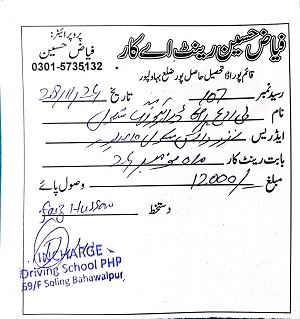 فیاض حسین رینٹ اے کار
پروپرائیٹر:
فیاض حسین
0301-5735132
قائم پور تحصیل حاصل پور ضلع بہاولپور
رسید نمبر 107 تاریخ 28/11/24
نام
ایڈریس
بابت رینٹ کار ماہ نومبر 24
مبلغ 12000/- وصول پائے
دستخط Faiz Hussain
INCHARGE
Driving School PHP
69/F Soling Bahawalpur